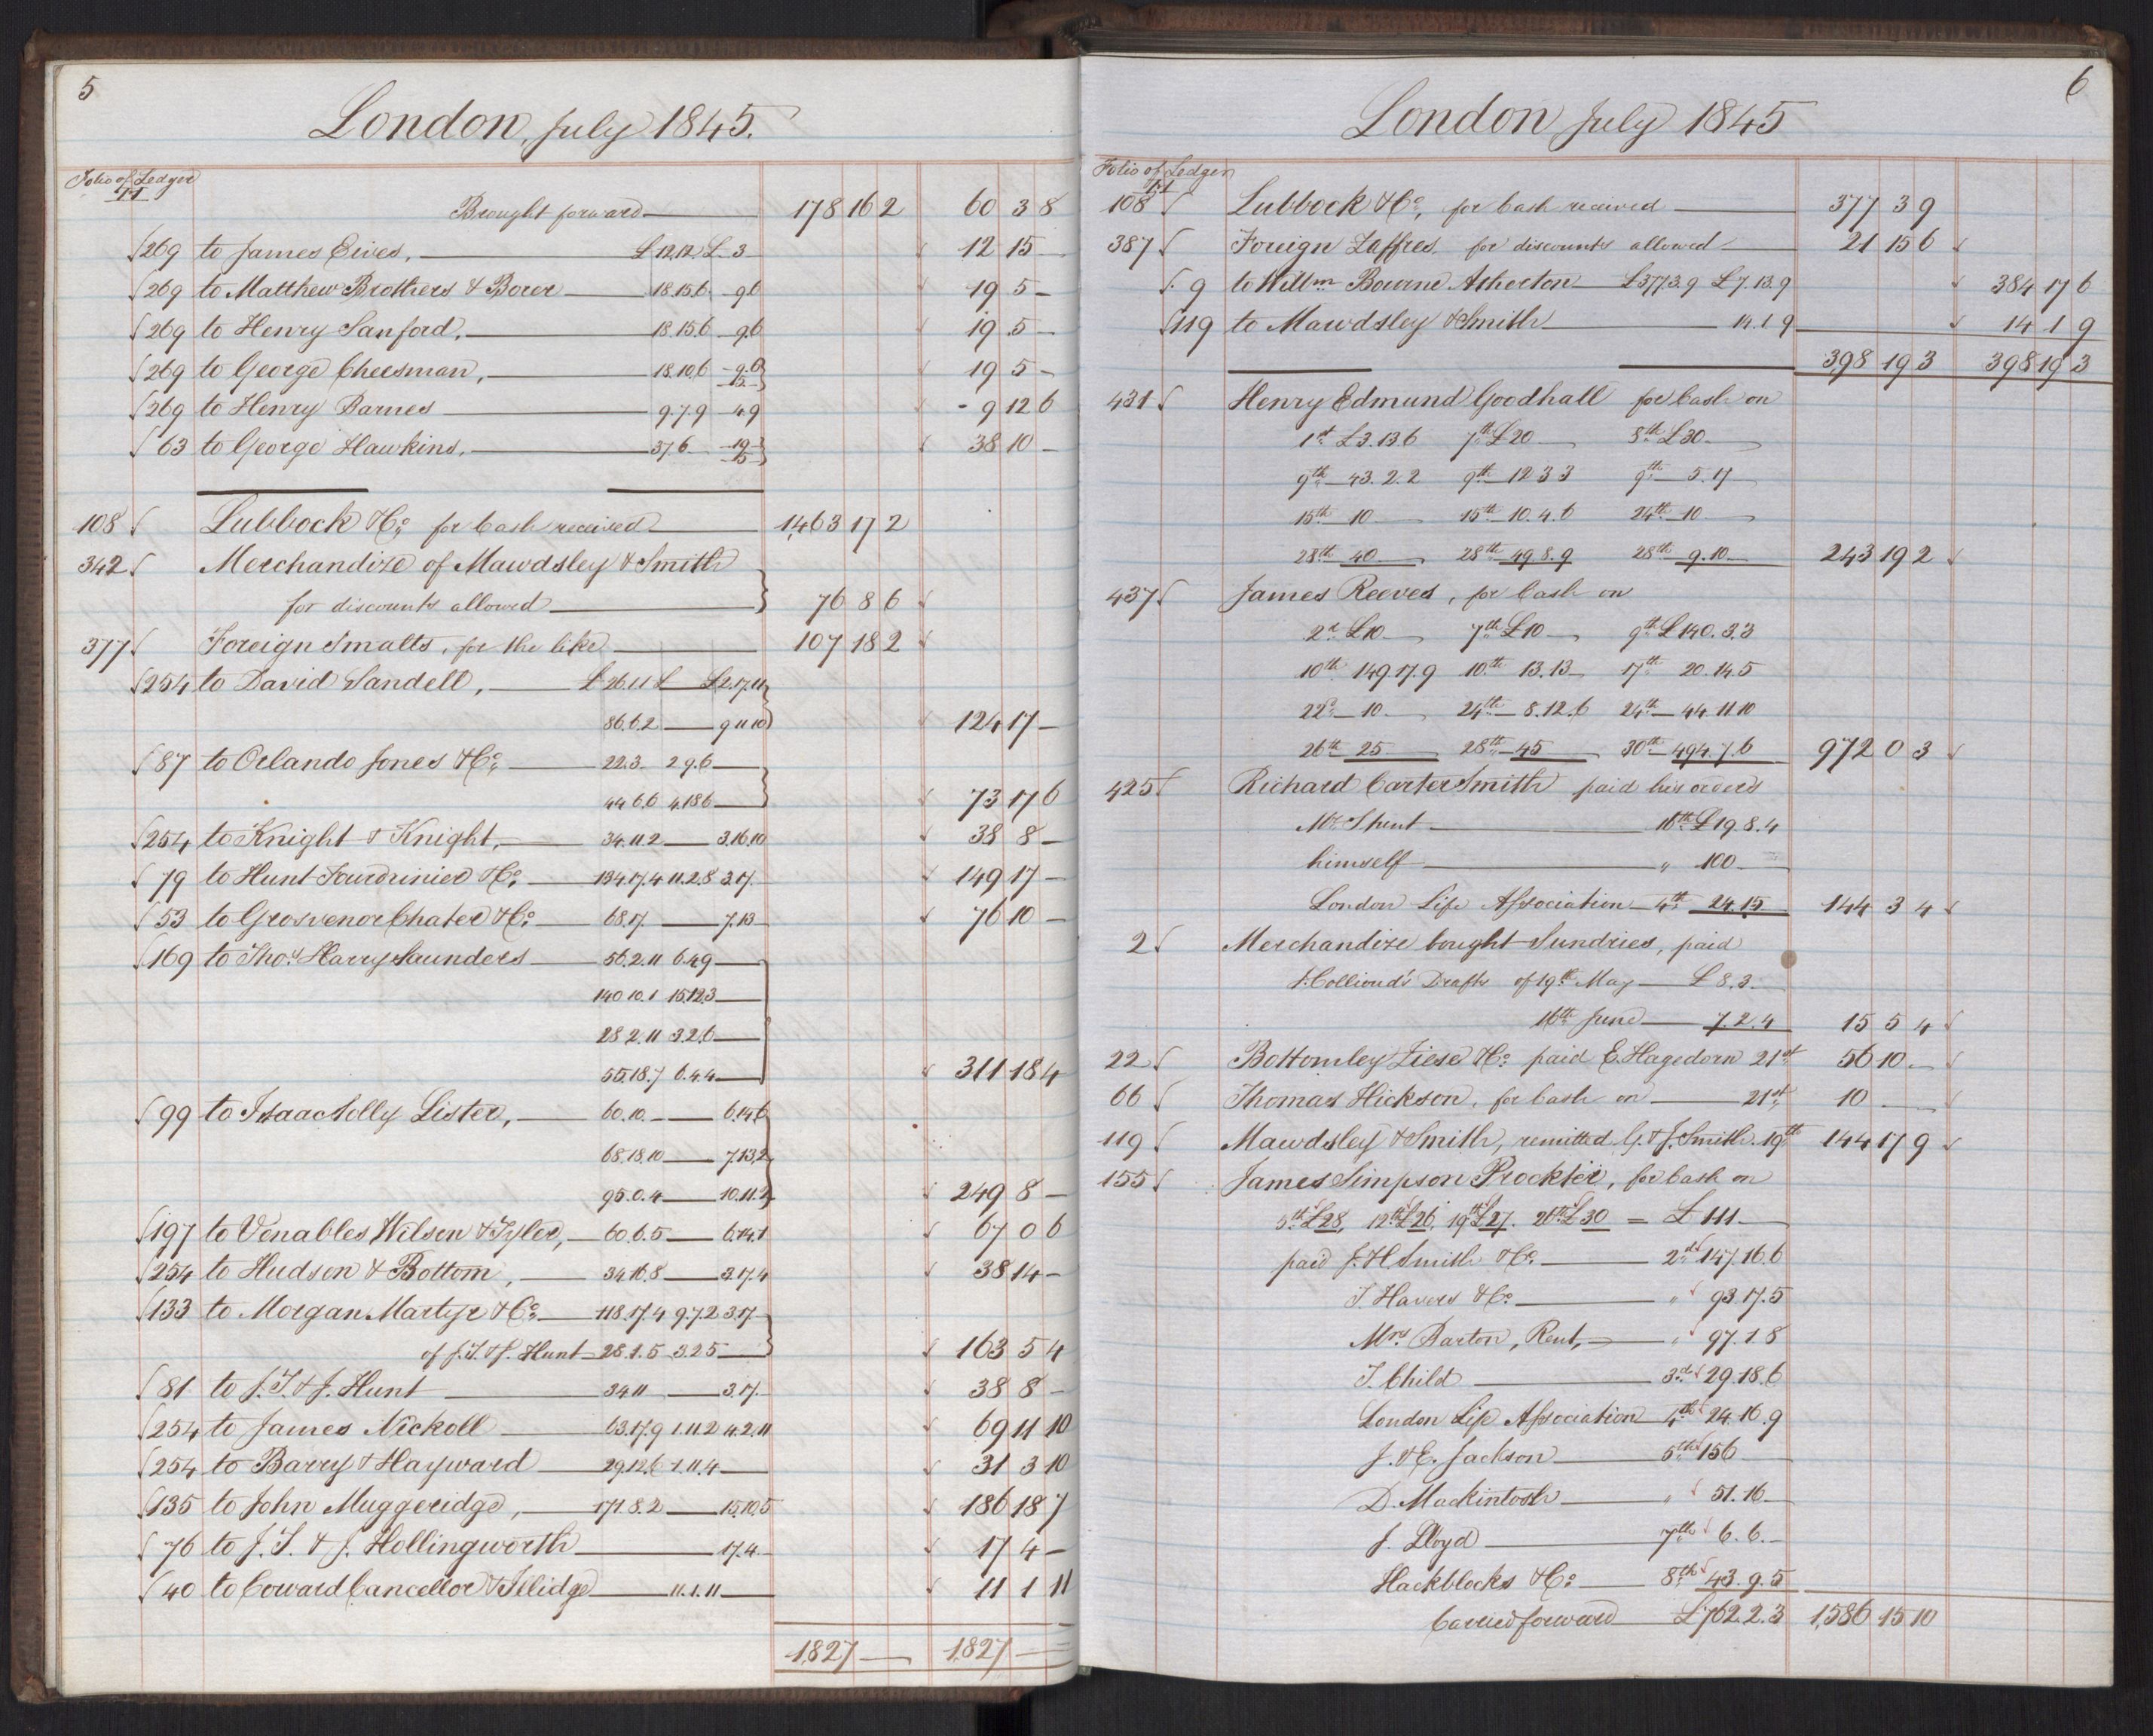 5
London, July 1845.
Folio of Ledger
Brought forward 178 16 2 60 3 8
269 to James Eives, £12.12 £ 3 12 15 –
269 to Matthew Brothers & Borer 18.15.6 – 9.6 19 5 –
269 to Henry Sanford, 18.15.6 – 9.6 19 5 –
269 to George Cheesman, 18.10.6 – 9.6 19 5 –
15
269 to Henry Barnes 9.7.9 – 4.9 – 9 12 6
63 to George Hawkins, 37.6 38 10 –
108 Lubbock & Co. for Cash received 1,463 17 2
342 Merchandize of Mawdsley & Smith
for discounts allowed 76 8 6
377 Foreign Smalts, for the like 107 18 2
254 to David Sandell, £26.1.1 £ £2.17.11
86.6.2 9.11.10 124 17 –
87 to Orlando Jones & Co. 22.3 2.9.6
44.6.6 4.18.6 73 17 6
254 to Knight & Knight, 34.11.2 3.16.10 38 8 –
79 to Hunt Fourdrinier & Co. 134.17.4 11.2.8 3.17. 149 17 –
53 to Grosvenor Chater & Co. 68.17. 7.13 76 10 –
169 to Thos. Harry Saunders 56.2.11 6.4.9
140.10.1 15.12.3
28.2.11 3.2.6
55.18.7 6.4.4 311 18 4
99 to Isaac Solly Lister, 60.10. 6.14.6
68.18.10 7.13.2
95.0.4 10.11.2 249 8 –
197 to Venables Wilson & Tyler, 60.6.5 6.14.1 67 0 6
254 to Hudson & Bottom, 34.16.8 3.17.4 38 14 –
133 to Morgan Martyr & Co. 118.17.4 9.7.2 3.17
of J.T. & J. Hunt 28.1.5 3.2.5 163 5 4
81 to J.T. & J. Hunt 34.11 3.17. 38 8 –
254 to James Nickoll 63.17.9 1.11.2 4.2.11 69 11 10
254 to Barry & Hayward 29.12.6 1.11.4 31 3 10
135 to John Muggeridge, 171.8.2 15.10.5 186 18 7
76 to J. S. & J. Hollingworth 17.4 17 4 –
40 to Coward Cancellor & Illidge 11.1.11 11 1 11
1,827 1,827
6
London July 1845
Folio of Ledger
108 Lubbock & Co., for Cash received 377 3 9
387 Foreign Zaffres, for discounts allowed 21 15 6
9 to Willm. Bourne Asherton £377.3.9 £7.13.9 384 17 6
119 to Mawdsley & Smith 14.1.9 14 1 9
398 19 3 398 19 3
431 Henry Edmund Goodhall for Cash on
1st £3.13.6 7th £20 8th £30
9th 43.2.2 9th 12.3.3 9th 5.17
15th 10 15th 10.4.6 24th 10
28th 40 28th 49.8.9 28th 9.10 243 19 2
437 James Reeves, for Cash on
2d £10 7th £10 9th £140.3.3
10th 149.17.9 10th 13.13 17th 20.14.5
22d 10 24th 8.12.6 24th 44.11.10
26th 25 28th 45 30th 494.7.6 972 0 3
425 Richard Carter Smith paid his orders
Mr. Shent 16th £19.8.4
himself " 100
London Life Association 4th 24.15 144 3 4
2 Merchandize bought Sundries, paid
Drafts of 19th May £8.3.
16th June 7.2.4 15 5 4
22 Bottomley Ziese & Co. paid E. Hagedorn 21st 56 10 –
66 Thomas Hickson, for Cash on 21st 10
119 Mawdsley & Smith, remitted G. & J. Smith 19th 144 17 9
155 James Simpson Prockter, for Cash on
5th £28, 12th £26, 19th £27. 26th £30 = £111
paid J.H. Smith & Co. 2d 147.16.6
T. Havers & Co. " 93.17.5
Mrs. Barton, Rent, " 97.1.8
T. Child 3rd 29.18.6
London Life Association 4th 24.16.9
J. & E. Jackson 5th 156
D. Mackintosh " 51.16
J. Lloyd 7th 6.6.–
Hackblocks & Co. 8th 43.9.5
Carried forward £762.2.3 1,586 15 10